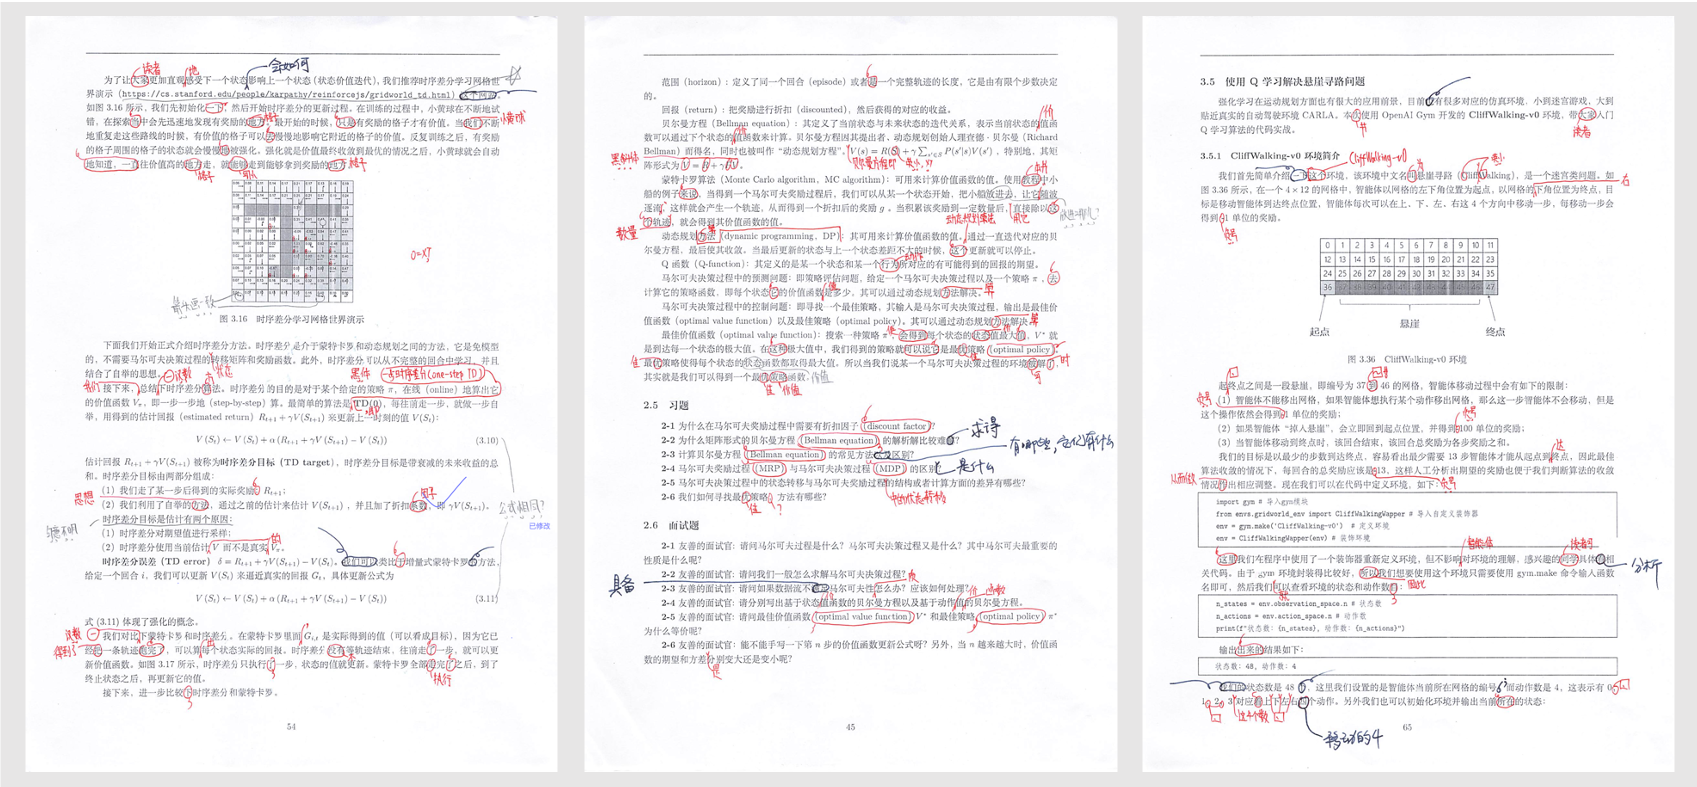 为了让大家更加直观感受下一个状态影响上一个状态（状态价值迭代），我们推荐时序差分学习网格世
界演示（https://cs.stanford.edu/people/karpathy/reinforcejs/gridworld_td.html）这个网站。
如图 3.16 所示，我们先初始化一下，然后开始时序差分的更新过程。在训练的过程中，小黄球在不断地试
错，在探索当中会先迅速地发现有奖励的地方。最开始的时候，只是有奖励的格子才有价值。当我们不断
地重复走这些路线的时候，有价值的格子可以去慢慢地影响它附近的格子的价值。反复训练之后，有奖励
的格子周围的格子的状态就会慢慢地被强化。强化就是价值最终收敛到最优的情况之后，小黄球就会自动
地知道，一直往价值高的地方走，就能够走到能够拿到奖励的地方。
读者
他
会如何
黄球
格子
格子
格子
图 3.16 时序差分学习网格世界演示
下面我们开始正式介绍时序差分方法。时序差分是介于蒙特卡罗和动态规划之间的方法，它是免模型
的，不需要马尔可夫决策过程的转移矩阵和奖励函数。此外，时序差分可以从不完整的回合中学习，并且
结合了自举的思想。
黑体
一步时序差分(one-step TD)
我们
接下来，总结下时序差分算法。时序差分的目的是对于某个给定的策略 π，在线（online）地算出它
的价值函数 Vπ，即一步一步地（step-by-step）算。最简单的算法是 TD(0)，每往前走一步，就做一步自
举，用得到的估计回报（estimated return）Rt+1 + γV(St+1) 来更新上一时刻的值 V(St)：
V(St) ← V(St) + α(Rt+1 + γV(St+1) − V(St)) (3.10)
估计回报 Rt+1 + γV(St+1) 被称为时序差分目标（TD target），时序差分目标是带衰减的未来收益的总
和。时序差分目标由两部分组成：
（1）我们走了某一步后得到的实际奖励 Rt+1；
思想
（2）我们利用了自举的方法，通过之前的估计来估计 V(St+1)，并且加了折扣系数，即 γV(St+1)。
因子
公式相同?
已修改
时序差分目标是估计有两个原因：
（1）时序差分对期望值进行采样；
（2）时序差分使用当前估计 V 而不是真实 Vπ。
的
时序差误差（TD error）δ = Rt+1 + γV(St+1) − V(St)。我们可以类比于增量式蒙特卡罗的方法，
给定一个回合 i，我们可以更新 V(St) 来逼近真实的回报 Gt，具体更新公式为
V(St) ← V(St) + α(Rt+1 + γV(St+1) − V(St)) (3.11)
式 (3.11) 体现了强化的概念。
我们对比下蒙特卡罗和时序差分。在蒙特卡罗里面 Gi,t 是实际得到的值（可以看成目标），因为它已
经把一条轨迹跑完了，可以算每个状态实际的回报。时序差分没有等轨迹结束，往前走了一步，就可以更
新价值函数。如图 3.17 所示，时序差分只执行了一步，状态的值就更新。蒙特卡罗全部走完了之后，到了
终止状态之后，再更新它的值。
执行
接下来，进一步比较下时序差分和蒙特卡罗。
54
范围（horizon）：定义了同一个回合（episode）或者是一个完整轨迹的长度，它是由有限个步数决定
的。
回报（return）：把奖励进行折扣（discounted），然后获得的对应的收益。
贝尔曼方程（Bellman equation）：其定义了当前状态与未来状态的迭代关系，表示当前状态的值函
数可以通过下个状态的值函数来计算。贝尔曼方程因其提出者、动态规划创始人理查德·贝尔曼（Richard
Bellman）而得名，同时也被叫作“动态规划方程”。V(s) = R(S) + γ∑s'∈S P(s'|s)V(s')，特别地，其矩
阵形式为 V = R + γPV。
黑斜体
蒙特卡罗算法（Monte Carlo algorithm，MC algorithm）：可用来计算价值函数的值。使用教程中小
船的例子来说，当得到一个马尔可夫奖励过程后，我们可以从某一个状态开始，把小船放进去，让它随波
逐流，这样就会产生一个轨迹，从而得到一个折扣后的奖励 g。当积累该奖励到一定数量后，直接除以这
个轨迹，就会得到其价值函数的值。
数量
动态规划算法
用它
动态规划方法（dynamic programming，DP）：其可用来计算价值函数的值。通过一直迭代对应的贝
尔曼方程，最后使其收敛。当最后更新的状态与上一个状态差距不大的时候，这个更新就可以停止。
Q 函数（Q-function）：其定义的是某一个状态和某一个行为所对应的有可能得到的回报的期望。
动作
马尔可夫决策过程中的预测问题：即策略评估问题，给定一个马尔可夫决策过程以及一个策略 π，去
计算它的策略函数，即每个状态它的价值函数是多少。其可以通过动态规划方法解决。
马尔可夫决策过程中的控制问题：即寻找一个最佳策略，其输入是马尔可夫决策过程，输出是最佳价
值函数（optimal value function）以及最佳策略（optimal policy）。其可以通过动态规划方法解决。
最佳价值函数（optimal value function）：搜索一种策略 π，会得到每个状态的状态值最大值，V* 就
是到达每一个状态的极大值。在这种极大值中，我们得到的策略就可以说它是最优策略（optimal policy）。
最优策略使得每个状态的状态函数都取得最大值。所以当我们说某一个马尔可夫决策过程的环境被解了，
其实就是我们可以得到一个最优策略函数。
价值
2.5 习题
2-1 为什么在马尔可夫奖励过程中需要有折扣因子（discount factor）？
2-2 为什么矩阵形式的贝尔曼方程（Bellman equation）的解析解比较难？
求得
2-3 计算贝尔曼方程（Bellman equation）的常见方法以及区别？
有哪些，它们有什么
2-4 马尔可夫奖励过程（MRP）与马尔可夫决策过程（MDP）的区别？
是什么
2-5 马尔可夫决策过程中的状态转移与马尔可夫奖励过程的结构或者计算方面的差异有哪些？
中的状态转移
2-6 我们如何寻找最优策略，方法有哪些？
2.6 面试题
2-1 友善的面试官：请问马尔可夫过程是什么？马尔可夫决策过程又是什么？其中马尔可夫最重要的
性质是什么呢？
2-2 友善的面试官：请问我们一般怎么求解马尔可夫决策过程？
具备
2-3 友善的面试官：请问如果数据流不满足马尔可夫性怎么办？应该如何处理？
2-4 友善的面试官：请分别写出基于状态值函数的贝尔曼方程以及基于动作值的贝尔曼方程。
2-5 友善的面试官：请问最佳价值函数（optimal value function）V* 和最佳策略（optimal policy）π*
为什么等价呢？
2-6 友善的面试官：能不能手写一下第 n 步的价值函数更新公式呀？另外，当 n 越来越大时，价值函
数的期望和方差分别变大还是变小呢？
45
3.5 使用 Q 学习解决悬崖寻路问题
强化学习在运动规划方面也有很大的应用前景，目前有很多对应的仿真环境，小到迷宫游戏，大到
贴近真实的自动驾驶环境 CARLA。本次使用 OpenAI Gym 开发的 CliffWalking-v0 环境，带大家入门
Q 学习算法的代码实战。
读者
3.5.1 CliffWalking-v0 环境简介
CliffWalking-v0
我们首先简单介绍一下这个环境，该环境中文名叫悬崖寻路（CliffWalking），是一个迷宫类问题。如
图 3.36 所示，在一个 4 × 12 的网格中，智能体以网格的左下角位置为起点，以网格的下角位置为终点，目
右
标是移动智能体到达终点位置，智能体每次可以在上、下、左、右这 4 个方向中移动一步，每移动一步会
得到-1 单位的奖励。
负号
0 1 2 3 4 5 6 7 8 9 10 11
12 13 14 15 16 17 18 19 20 21 22 23
24 25 26 27 28 29 30 31 32 33 34 35
36 37 38 39 40 41 42 43 44 45 46 47
起点 悬崖 终点
图 3.36 CliffWalking-v0 环境
起终点之间是一段悬崖，即编号为 37 到 46 的网格，智能体移动过程中会有如下的限制：
（1）智能体不能移出网格，如果智能体想执行某个动作移出网格，那么这一步智能体不会移动，但是
这个操作依然会得到-1 单位的奖励；
负号
（2）如果智能体“掉入悬崖”，会立即回到起点位置，并得到-100 单位的奖励；
（3）当智能体移动到终点时，该回合结束，该回合总奖励为各步奖励之和。
我们的目标是以最少的步数到达终点，容易看出最少需要 13 步智能体才能从起点到终点，因此最佳
算法收敛的情况下，每回合的总奖励应该是-13，这样人工分析出期望的奖励也便于我们判断算法的收敛
从而做
情况作出相应调整。现在我们可以在代码中定义环境，如下：
负号
import gym # 导入gym模块
from envs.gridworld_env import CliffWalkingWapper # 导入自定义装饰器
env = gym.make('CliffWalking-v0') # 定义环境
env = CliffWalkingWapper(env) # 装饰环境
智能体
读者可
这里我们在程序中使用了一个装饰器重新定义环境，但不影响对环境的理解，感兴趣的同学具体看相
关代码。由于 gym 环境封装得比较好，所以我们想要使用这个环境只需要使用 gym.make 命令输入函数
分析
名即可，然后我们可以查看环境的状态和动作数：
因此
n_states = env.observation_space.n # 状态数
n_actions = env.action_space.n # 动作数
print(f"状态数：{n_states}，动作数：{n_actions}")
输出出来的结果如下：
状态数：48，动作数：4
我们的状态数是 48 个，这里我们设置的是智能体当前所在网格的编号，而动作数是 4，这表示有 0、
1、2、3 对应着上下左右四个动作。另外我们也可以初始化环境并输出当前所在的状态：
这4个数
移动的4
65